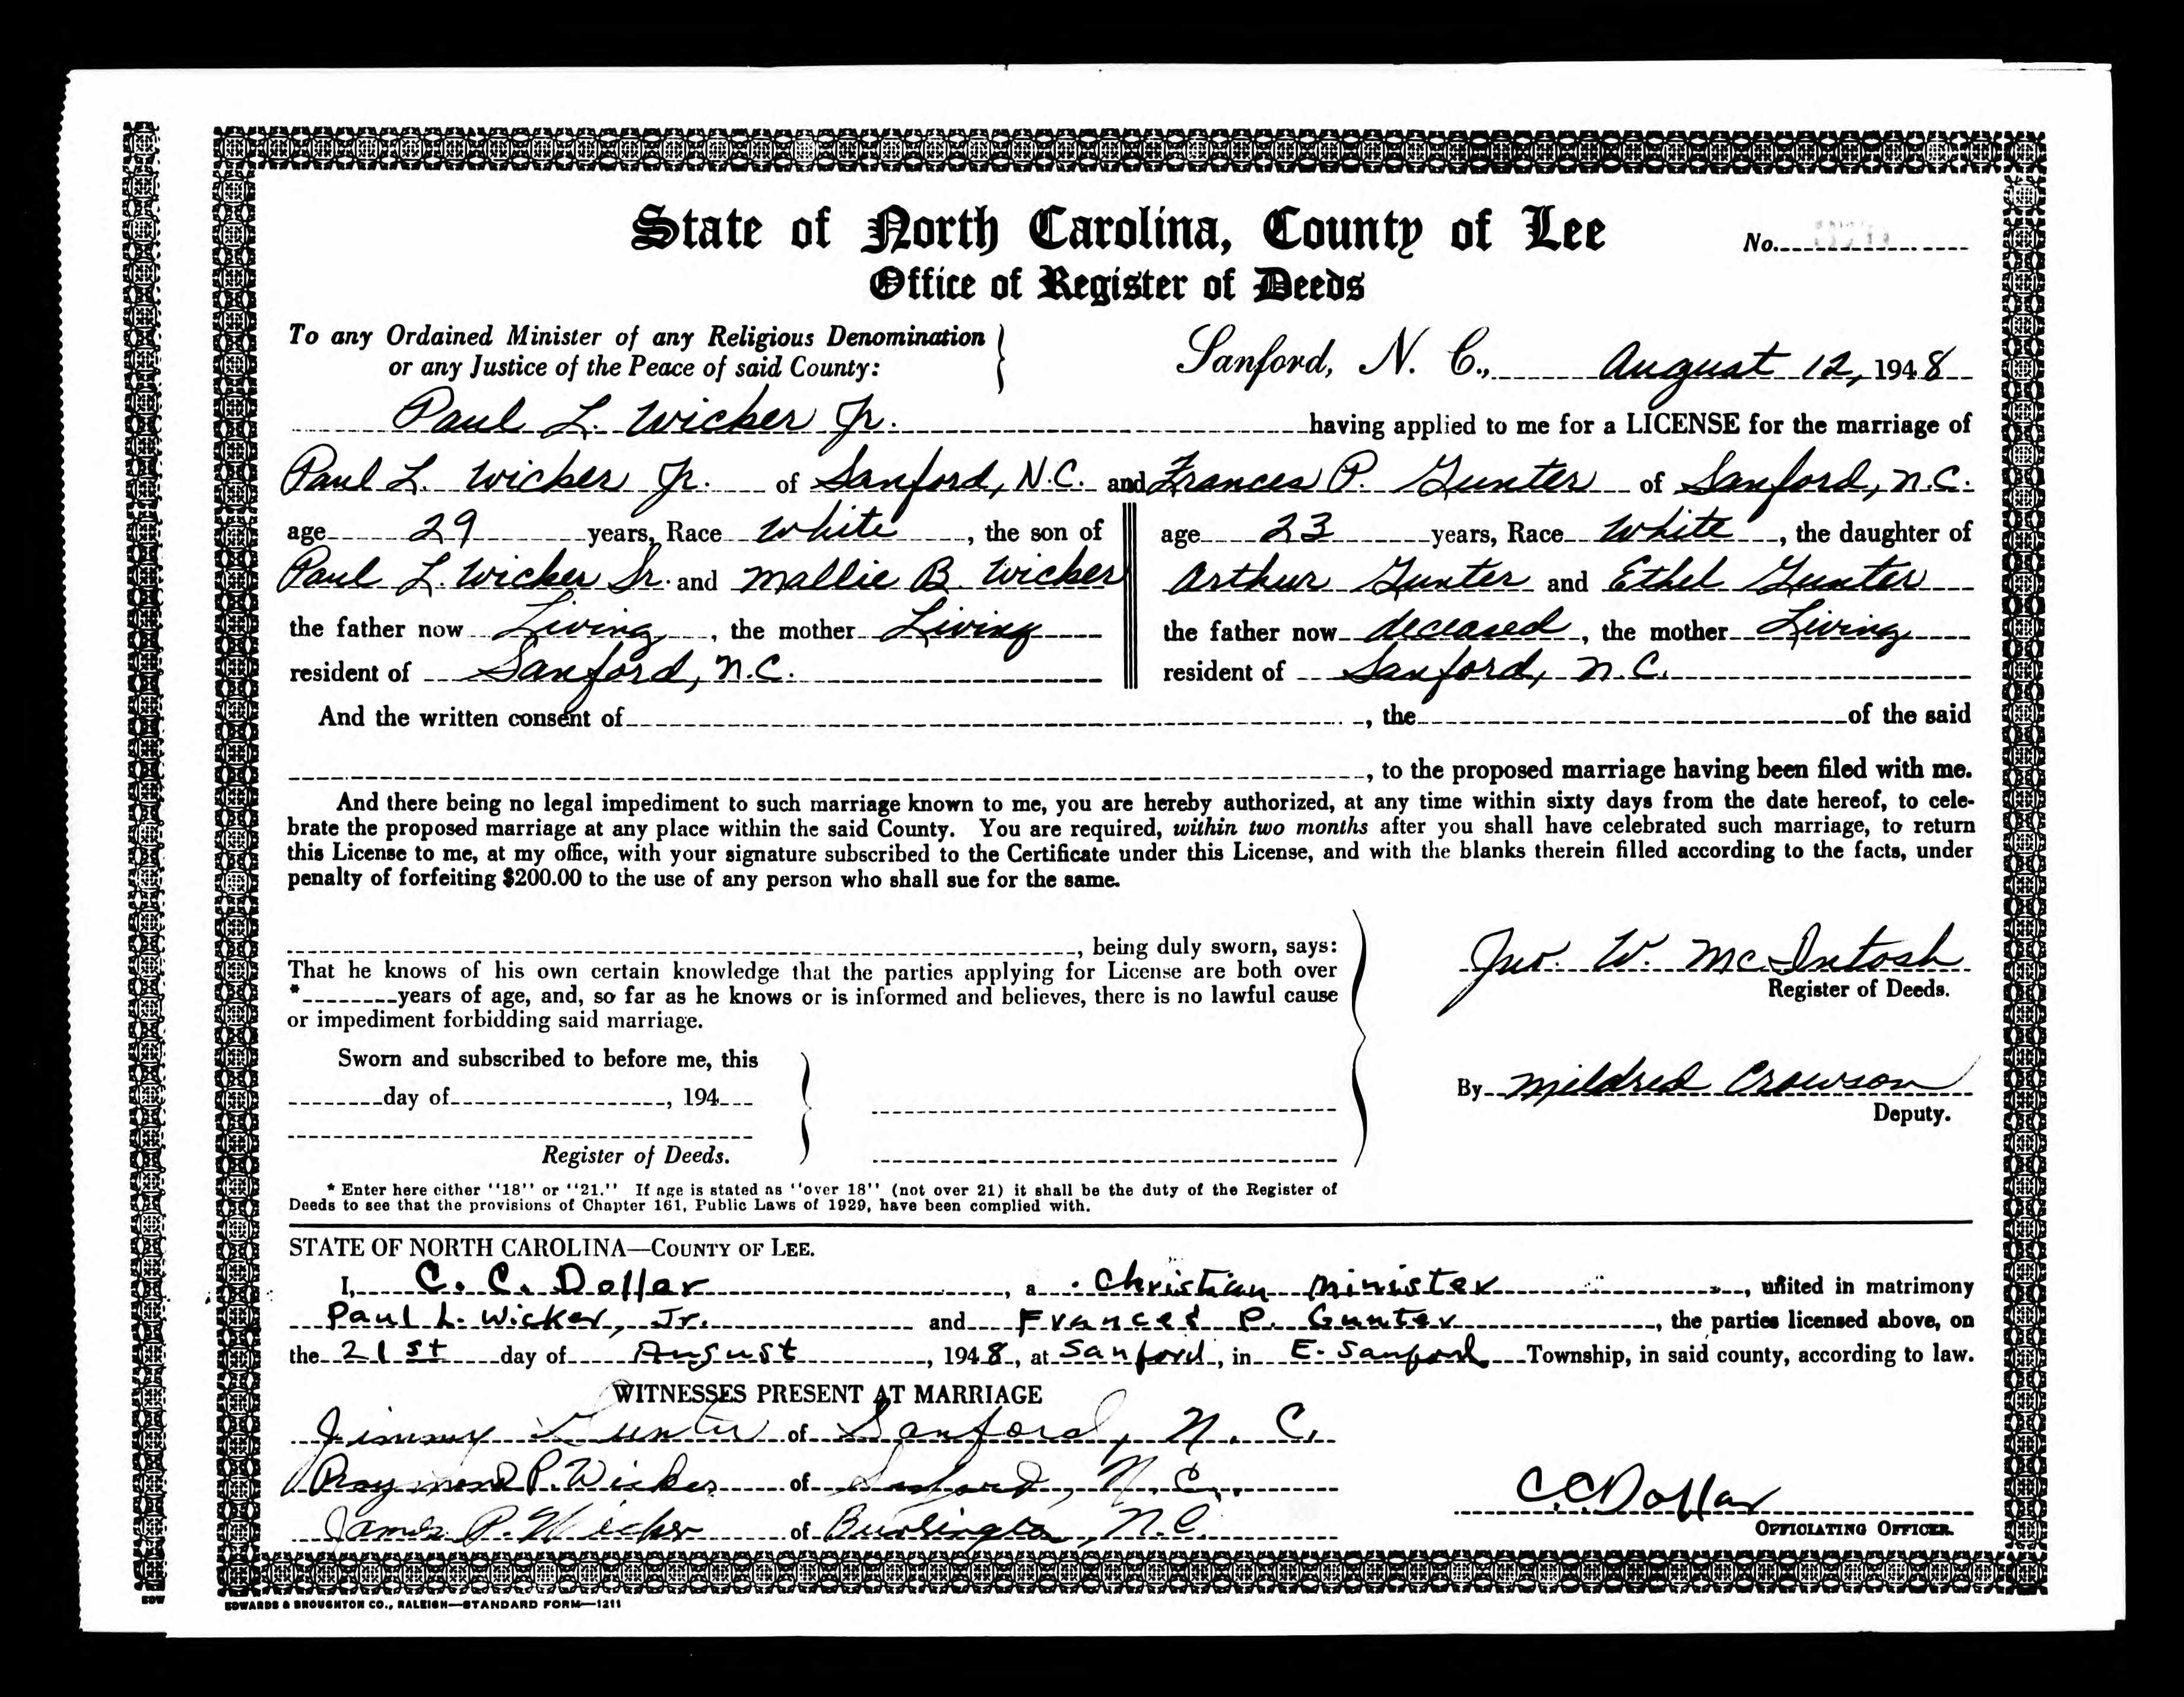 State of North Carolina, County of Lee
No.
Office of Register of Deeds
To any Ordained Minister of any Religious Denomination
or any Justice of the Peace of said County:
Sanford, N. C., August 12, 1948
Paul L. Wicker Jr. having applied to me for a LICENSE for the marriage of
Paul L. Wicker Jr. of Sanford, N.C. and Frances P. Gunter of Sanford, N.C.
age 29 years, Race White, the son of
age 23 years, Race White, the daughter of
Paul L. Wicker Sr. and Mallie B. Wicker
Arthur Gunter and Ethel Gunter
the father now Living, the mother Living
the father now deceased, the mother Living
resident of Sanford, N.C.
resident of Sanford, N.C.
And the written consent of , the of the said
, to the proposed marriage having been filed with me.
And there being no legal impediment to such marriage known to me, you are hereby authorized, at any time within sixty days from the date hereof, to cele-
brate the proposed marriage at any place within the said County. You are required, within two months after you shall have celebrated such marriage, to return
this License to me, at my office, with your signature subscribed to the Certificate under this License, and with the blanks therein filled according to the facts, under
penalty of forfeiting $200.00 to the use of any person who shall sue for the same.
, being duly sworn, says:
That he knows of his own certain knowledge that the parties applying for License are both over
* years of age, and, so far as he knows or is informed and believes, there is no lawful cause
or impediment forbidding said marriage.
Jno. W. McIntosh
Register of Deeds.
Sworn and subscribed to before me, this
day of , 194
Register of Deeds.
By Mildred Crowson
Deputy.
* Enter here either "18" or "21." If age is stated as "over 18" (not over 21) it shall be the duty of the Register of
Deeds to see that the provisions of Chapter 161, Public Laws of 1929, have been complied with.
STATE OF NORTH CAROLINA—COUNTY OF LEE.
I, C. C. Dollar, a Christian Minister, united in matrimony
Paul L. Wicker, Jr. and Frances P. Gunter, the parties licensed above, on
the 21st day of August, 1948, at Sanford, in E. Sanford Township, in said county, according to law.
WITNESSES PRESENT AT MARRIAGE
Jimmy Gunter of Sanford, N. C.
Raymond P. Wicker of Sanford, N. C.
James P. Wicker of Burlington, N.C.
C. C. Dollar
OFFICIATING OFFICER.
EDWARDS & BROUGHTON CO., RALEIGH—STANDARD FORM—1211
EDW